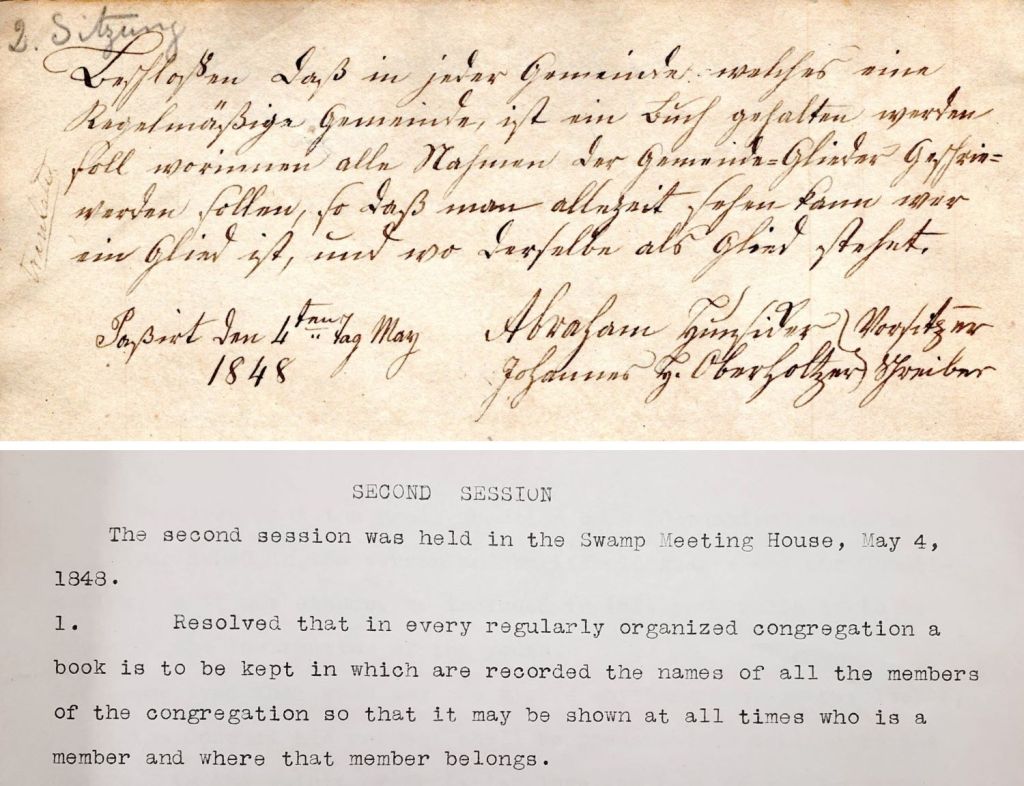 2. Sitzung
Beschloßen daß in jeder Gemeinde welches eine
Regelmäßige Gemeinde, ist ein Buch gehalten werden
soll worinnen alle Nahmen der Gemeinde=Glieder Geschrie=
werden sollen, so daß man allezeit sehen kann wer
ein Glied ist, und wo derselbe als Glied stehet.
Paßirt den 4ten Tag May
1848
Abraham Hunsicker } Vorsitzer
Johannes H. Oberholtzer } Schreiber
SECOND SESSION
The second session was held in the Swamp Meeting House, May 4,
1848.
1. Resolved that in every regularly organized congregation a
book is to be kept in which are recorded the names of all the members
of the congregation so that it may be shown at all times who is a
member and where that member belongs.